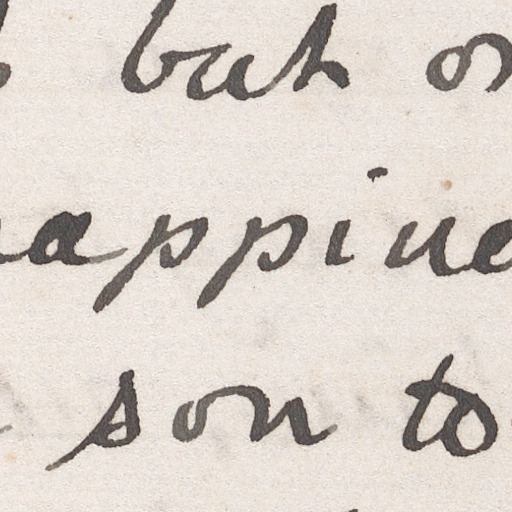 but on
happine
son to